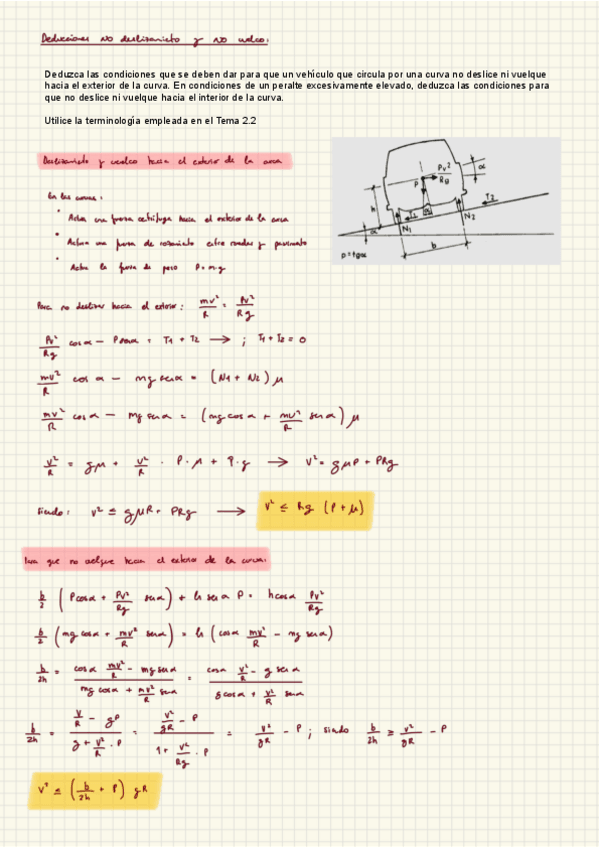 Deducciones no deslizamieto y no vuelco:
Deduzca las condiciones que se deben dar para que un vehículo que circula por una curva no deslice ni vuelque
hacia el exterior de la curva. En condiciones de un peralte excesivamente elevado, deduzca las condiciones para
que no deslice ni vuelque hacia el interior de la curva.
Utilice la terminología empleada en el Tema 2.2
Deslizamieto y vuelco hacia el exterior de la curva
En las curvas:
• Actúa una fuerza centrífuga hacia el exterior de la curva
• Actúa una fuerza de rozamiento entre ruedas y pavimento
• Actúa la fuerza de peso P=m·g
P Pv²/Rg α h T1 T2 N1 N2 α b
p=tgα
Para no deslizar hacia el exterior: mv²/R = Pv²/Rg
Pv²/Rg cosα − P senα = T1 + T2 → ; T1 + T2 = 0
mv²/R cos α − mg senα = (N1 + N2) μ
mv²/R cosα − mg senα = (mg cosα + mv²/R senα) μ
v²/R = gμ + v²/R · P · μ + P·g → v² = gμP + PRg
siendo: v² ≤ gμR + PRg → v² ≤ Rg (P + μ)
Para que no vuelque hacia el exterior de la curva:
b/2 (Pcosα + Pv²/Rg senα) + h senα P = h cosα Pv²/Rg
b/2 (mg cosα + mv²/R senα) = h (cosα mv²/R − mg senα)
b/2h = (cosα mv²/R − mg senα)/(mg cosα + mv²/R senα) = (cosα v²/R − g senα)/(g cosα + v²/R senα)
b/2h = (v/R − gP)/(g + v²/R · P) = (v²/gR − P)/(1 + v²/Rg · P) = v²/gR − P ; siendo b/2h ≥ v²/gR − P
v² ≤ (b/2h + P) gR